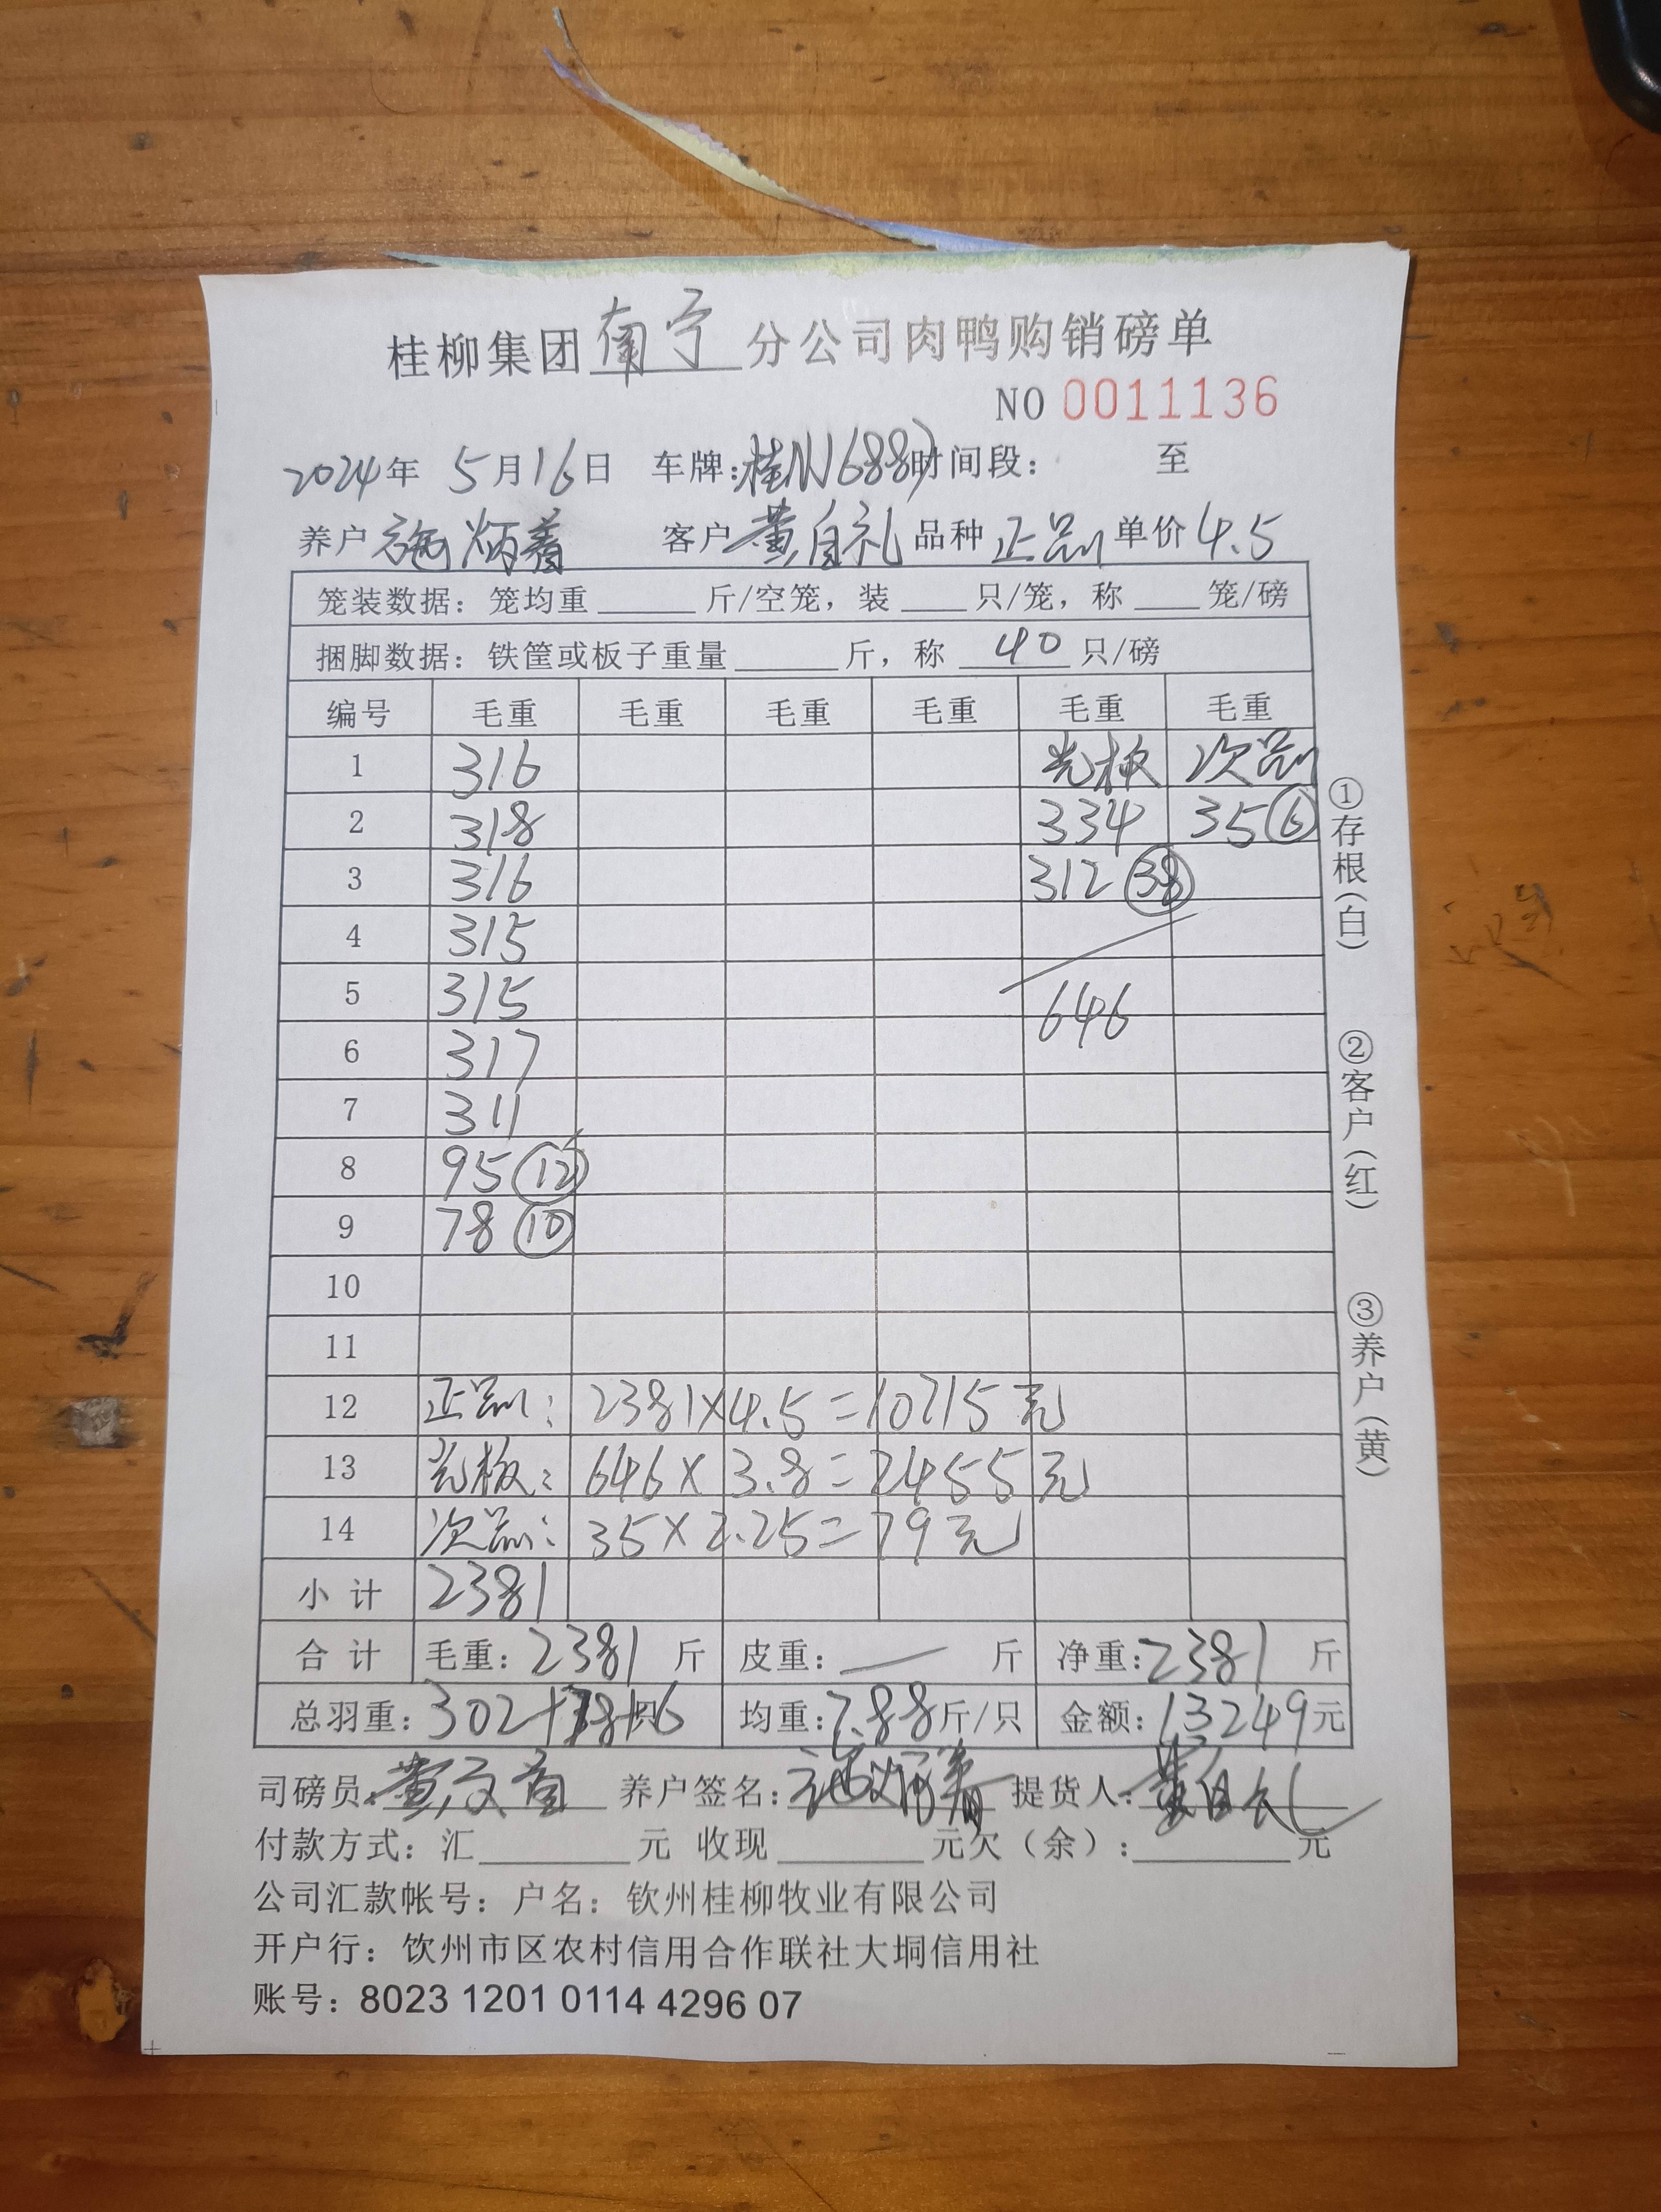 桂柳集团南宁分公司肉鸭购销磅单
NO 0011136
2024年 5月16日 车牌:桂N16887时间段: 至
养户 施炳着 客户 黄自礼 品种 正品 单价 4.5
笼装数据:笼均重______斤/空笼,装____只/笼,称____笼/磅
捆脚数据:铁筐或板子重量______斤,称 40 只/磅
编号 毛重 毛重 毛重 毛重 毛重 毛重
1 316 光板 次品
2 318 334 35 ⑥
3 316 312 ㊳
4 315
5 315 646
6 317
7 311
8 95 ⑫
9 78 ⑩
10
11
12 正品: 2381×4.5=10715元
13 光板: 646×3.8=2455元
14 次品: 35×2.25=79元
小计 2381
合计 毛重:2381 斤 皮重:— 斤 净重:2381 斤
总羽重:302+78+6只 均重:7.88斤/只 金额:13249元
司磅员: 养户签名:施炳着 提货人:黄自礼
付款方式:汇______元 收现______元欠(余):______元
公司汇款帐号:户名:钦州桂柳牧业有限公司
开户行:钦州市区农村信用合作联社大垌信用社
账号:8023 1201 0114 4296 07
①存根(白)
②客户(红)
③养户(黄)